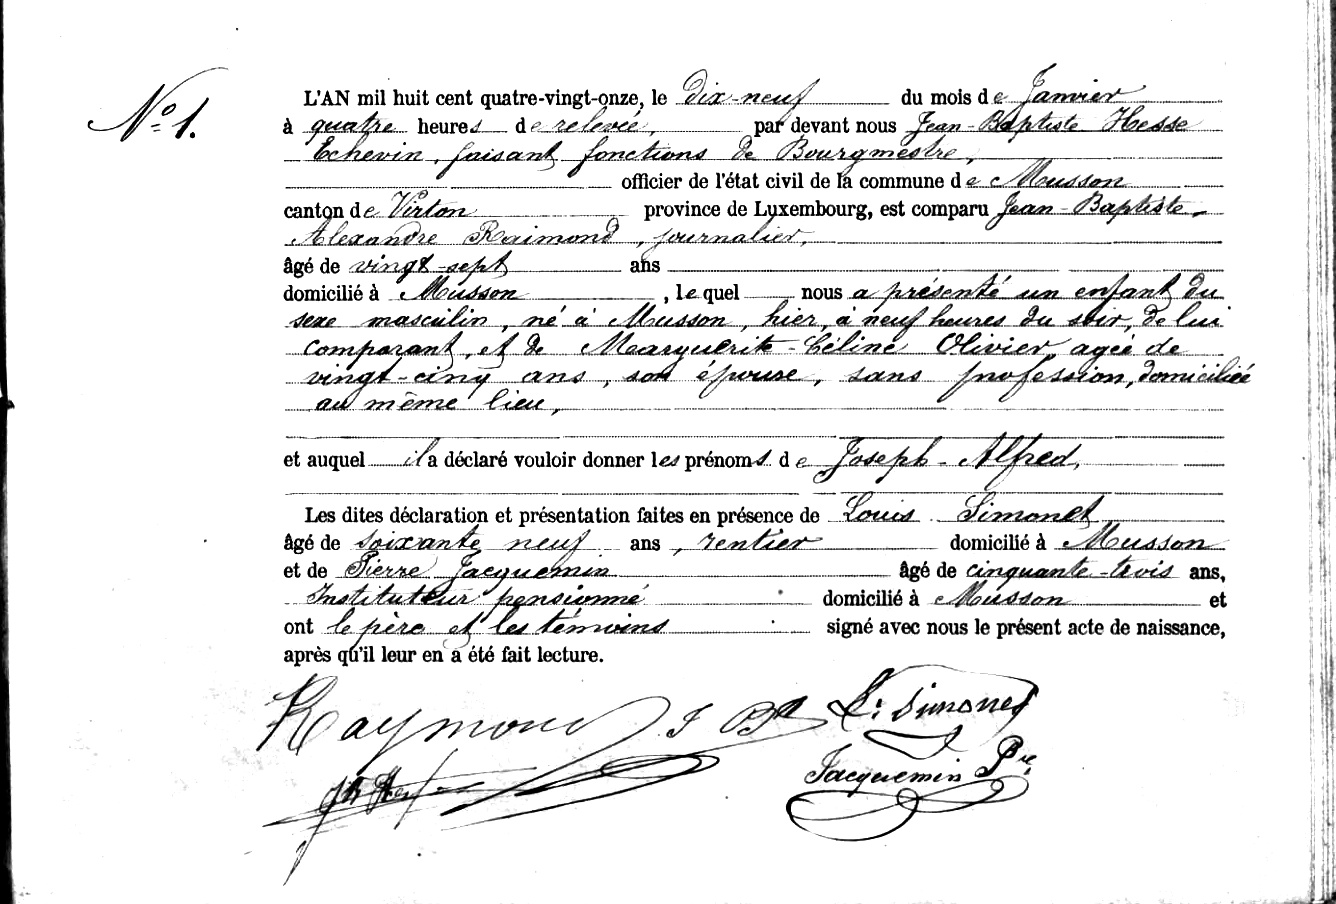 N° 1.
L'AN mil huit cent quatre-vingt-onze, le dix-neuf du mois de Janvier
à quatre heures de relevée, par devant nous Jean-Baptiste Hesse
Echevin, faisant fonctions de Bourgmestre,
officier de l'état civil de la commune de Musson
canton de Virton province de Luxembourg, est comparu Jean-Baptiste-
Alexandre Raimond, journalier,
âgé de vingt-sept ans
domicilié à Musson, lequel nous a présenté un enfant du
sexe masculin, né à Musson, hier, à neuf heures du soir, de lui
comparant, et de Marguerite-Céline Olivier, agée de
vingt-cinq ans, son épouse, sans profession, domiciliée
au même lieu,
et auquel il a déclaré vouloir donner les prénoms de Joseph-Alfred,
Les dites déclaration et présentation faites en présence de Louis Simonet
âgé de soixante neuf ans, rentier domicilié à Musson
et de Pierre Jacquemin âgé de cinquante-trois ans,
Instituteur pensionné domicilié à Musson et
ont le père et les témoins signé avec nous le présent acte de naissance,
après qu'il leur en a été fait lecture.
Raymond J Bte L. Simonet
Jacquemin Pre